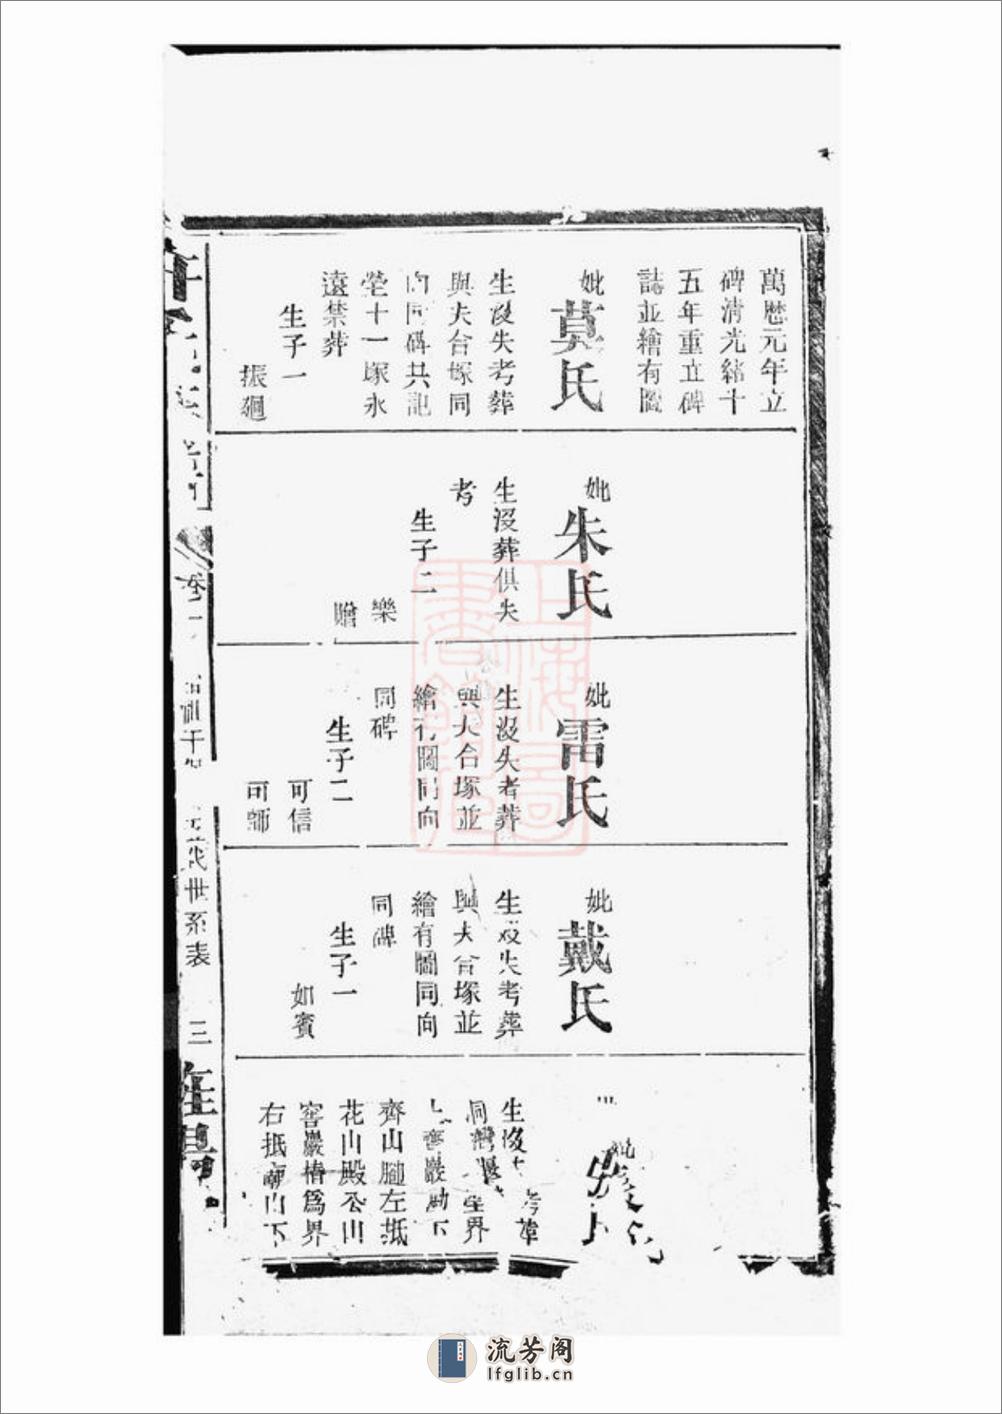 萬歷元年立
碑清光緒十
五年重立碑
誌並繪有圖
妣莫氏
生沒失考葬
與夫合塚同
向同碑共記
塋十一塚永
遠禁葬
生子一
振廻
妣朱氏
生沒葬俱失
考
生子二
樂
贍
妣雷氏
生沒失考葬
與夫合塚並
繪有圖同向
同碑
生子二
可信
可師
妣戴氏
生沒失考葬
與夫合塚並
繪有圖同向
同碑
生子一
如賓
妣
生沒 考葬
洞灣 坐界
巖 下
齊山腳左抵
花山殿公山
窖巖樁爲界
右抵廟山下
卷
世系表
三
上海圖書館藏
流芳阁
lfglib.cn